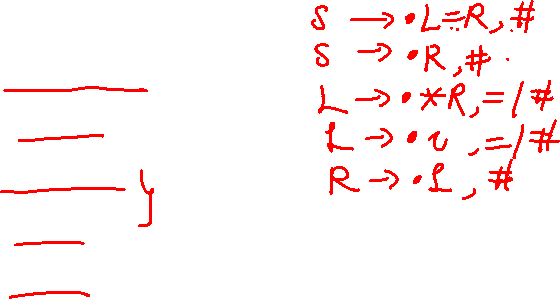 S → •L=R, #
S → •R, #
L → •*R, =/#
L → •i, =/#
R → •L, #